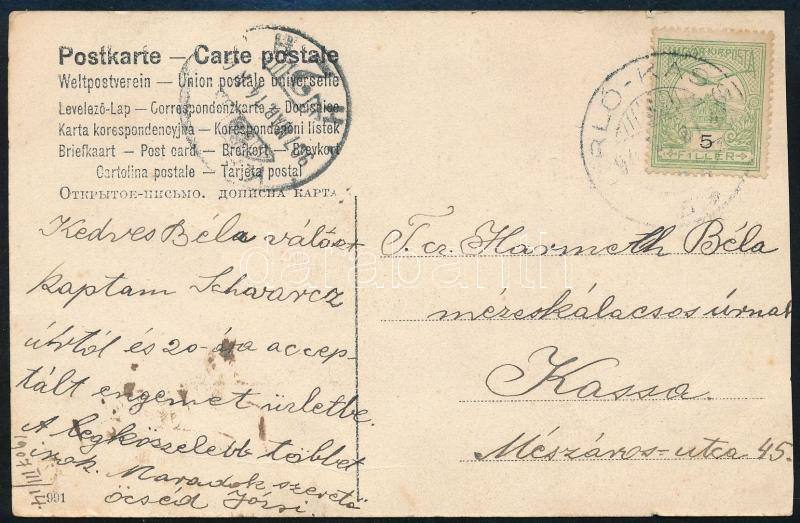 Postkarte — Carte postale
Weltpostverein — Union postale universelle
Levelező-Lap — Correspondenzkarte — Dopisnice
Karta korespondencyjna — Korespondenční lístek
Briefkaart — Post card — Brefkort — Brevkort
Cartolina postale — Tarjeta postal
Открытое-письмо. дописна карта
Kedves Béla választ
kaptam Schwarcz
úrtól és 20-ára accep-
tált engemet üzletbe.
A legközzelebb többet
irok. Maradok szerető
öcséd Józsi.
1907 III/14.
991
MAGYAR KIR. POSTA
5
FILLÉR
907 MÁR
T. cz. Harmeth Béla
mézeskalácsos úrnak
Kassa.
Mészáros-utca 45.
darabanth